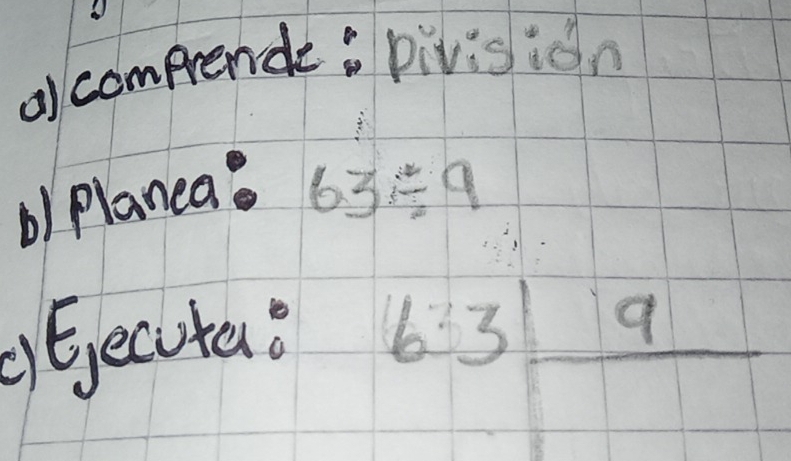 a) comprende: División
b) Planea: 63÷9
c) Ejecuta: 63 | 9